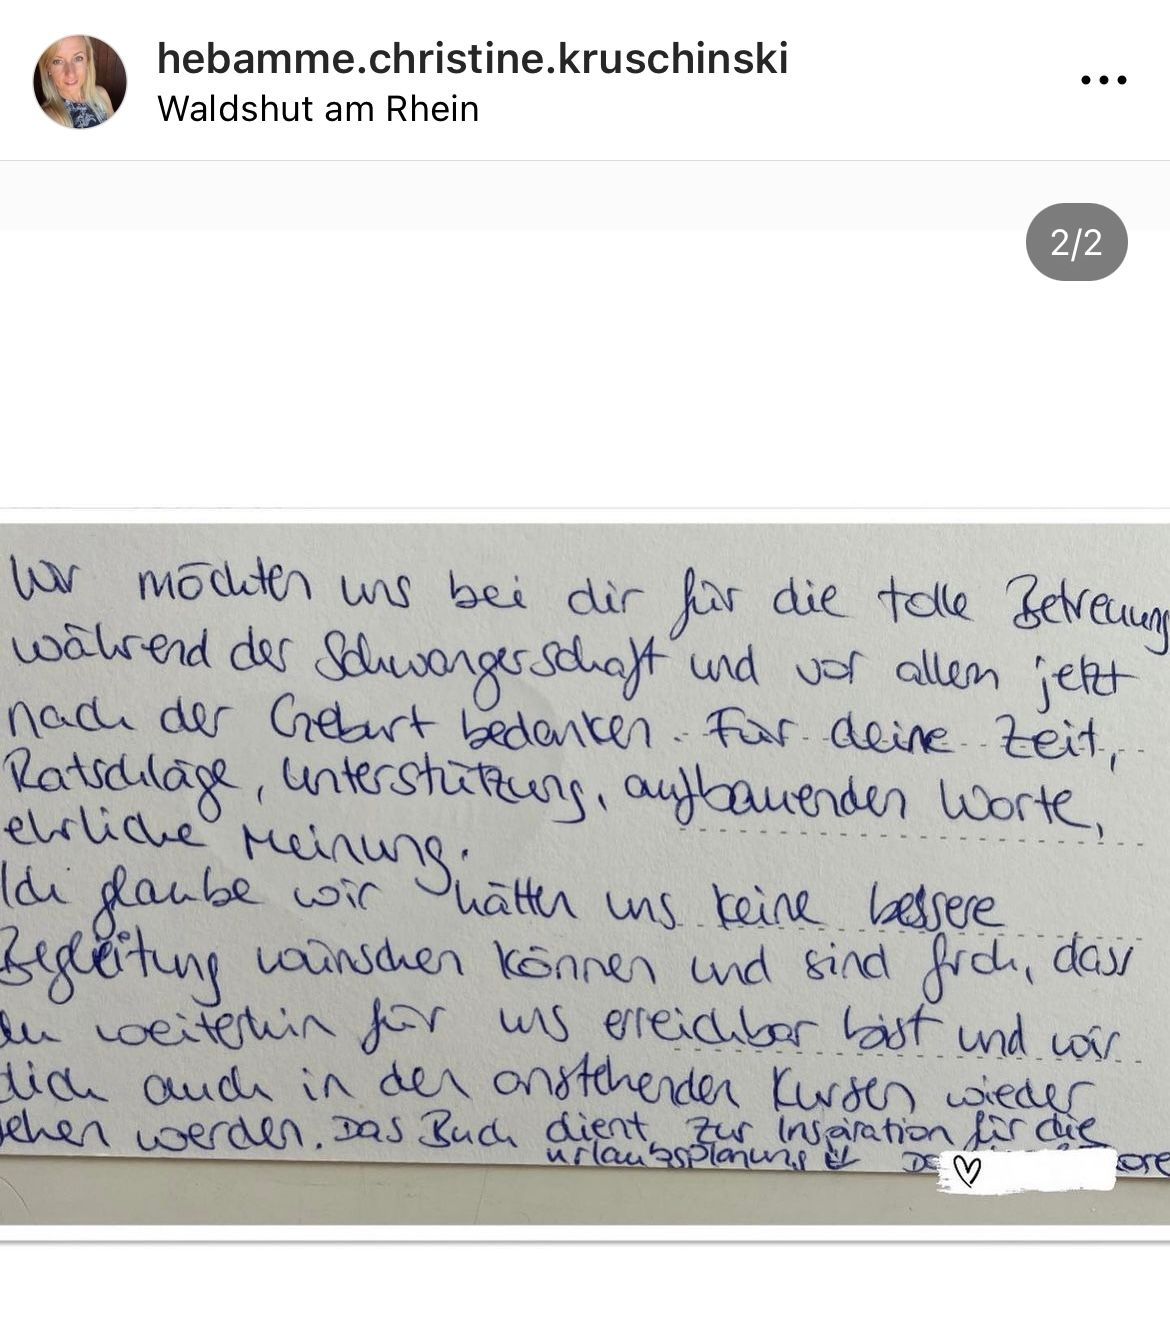 hebamme.christine.kruschinski
Waldshut am Rhein
2/2
Wir möchten uns bei dir für die tolle Betreuung
während der Schwangerschaft und vor allem jetzt
nach der Geburt bedanken. Für deine Zeit,
Ratschläge, Unterstützung, aufbauenden Worte,
ehrliche Meinung.
Ich glaube wir hätten uns keine bessere
Begleitung wünschen können und sind froh, dass
du weiterhin für uns erreichbar bist und wir
dich auch in den anstehenden Kursen wieder
sehen werden. Das Buch dient zur Inspiration für die
Urlaubsplanung